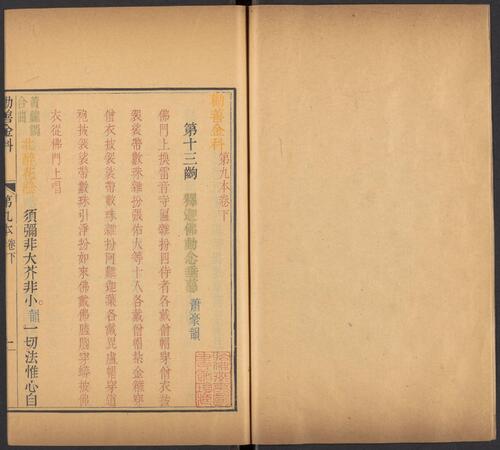 勸善金科 第九本卷下
第十三齣 釋迦佛動念垂慈 蕭豪韻
佛門上換雷音寺匾雜扮四侍者各戴僧帽穿僧衣披
袈裟帶數珠雜扮張佑大等十人各戴僧帽紥金箍穿
僧衣披袈裟帶數珠雜扮阿難迦葉各戴毘盧帽穿道
袍披袈裟帶數珠引淨扮如來佛戴佛臉腦穿蟒披佛
衣從佛門上唱
黃鐘調
合曲 北醉花陰 須彌非大芥非小韻一切法惟心自
勸善金科 第九本卷下 一